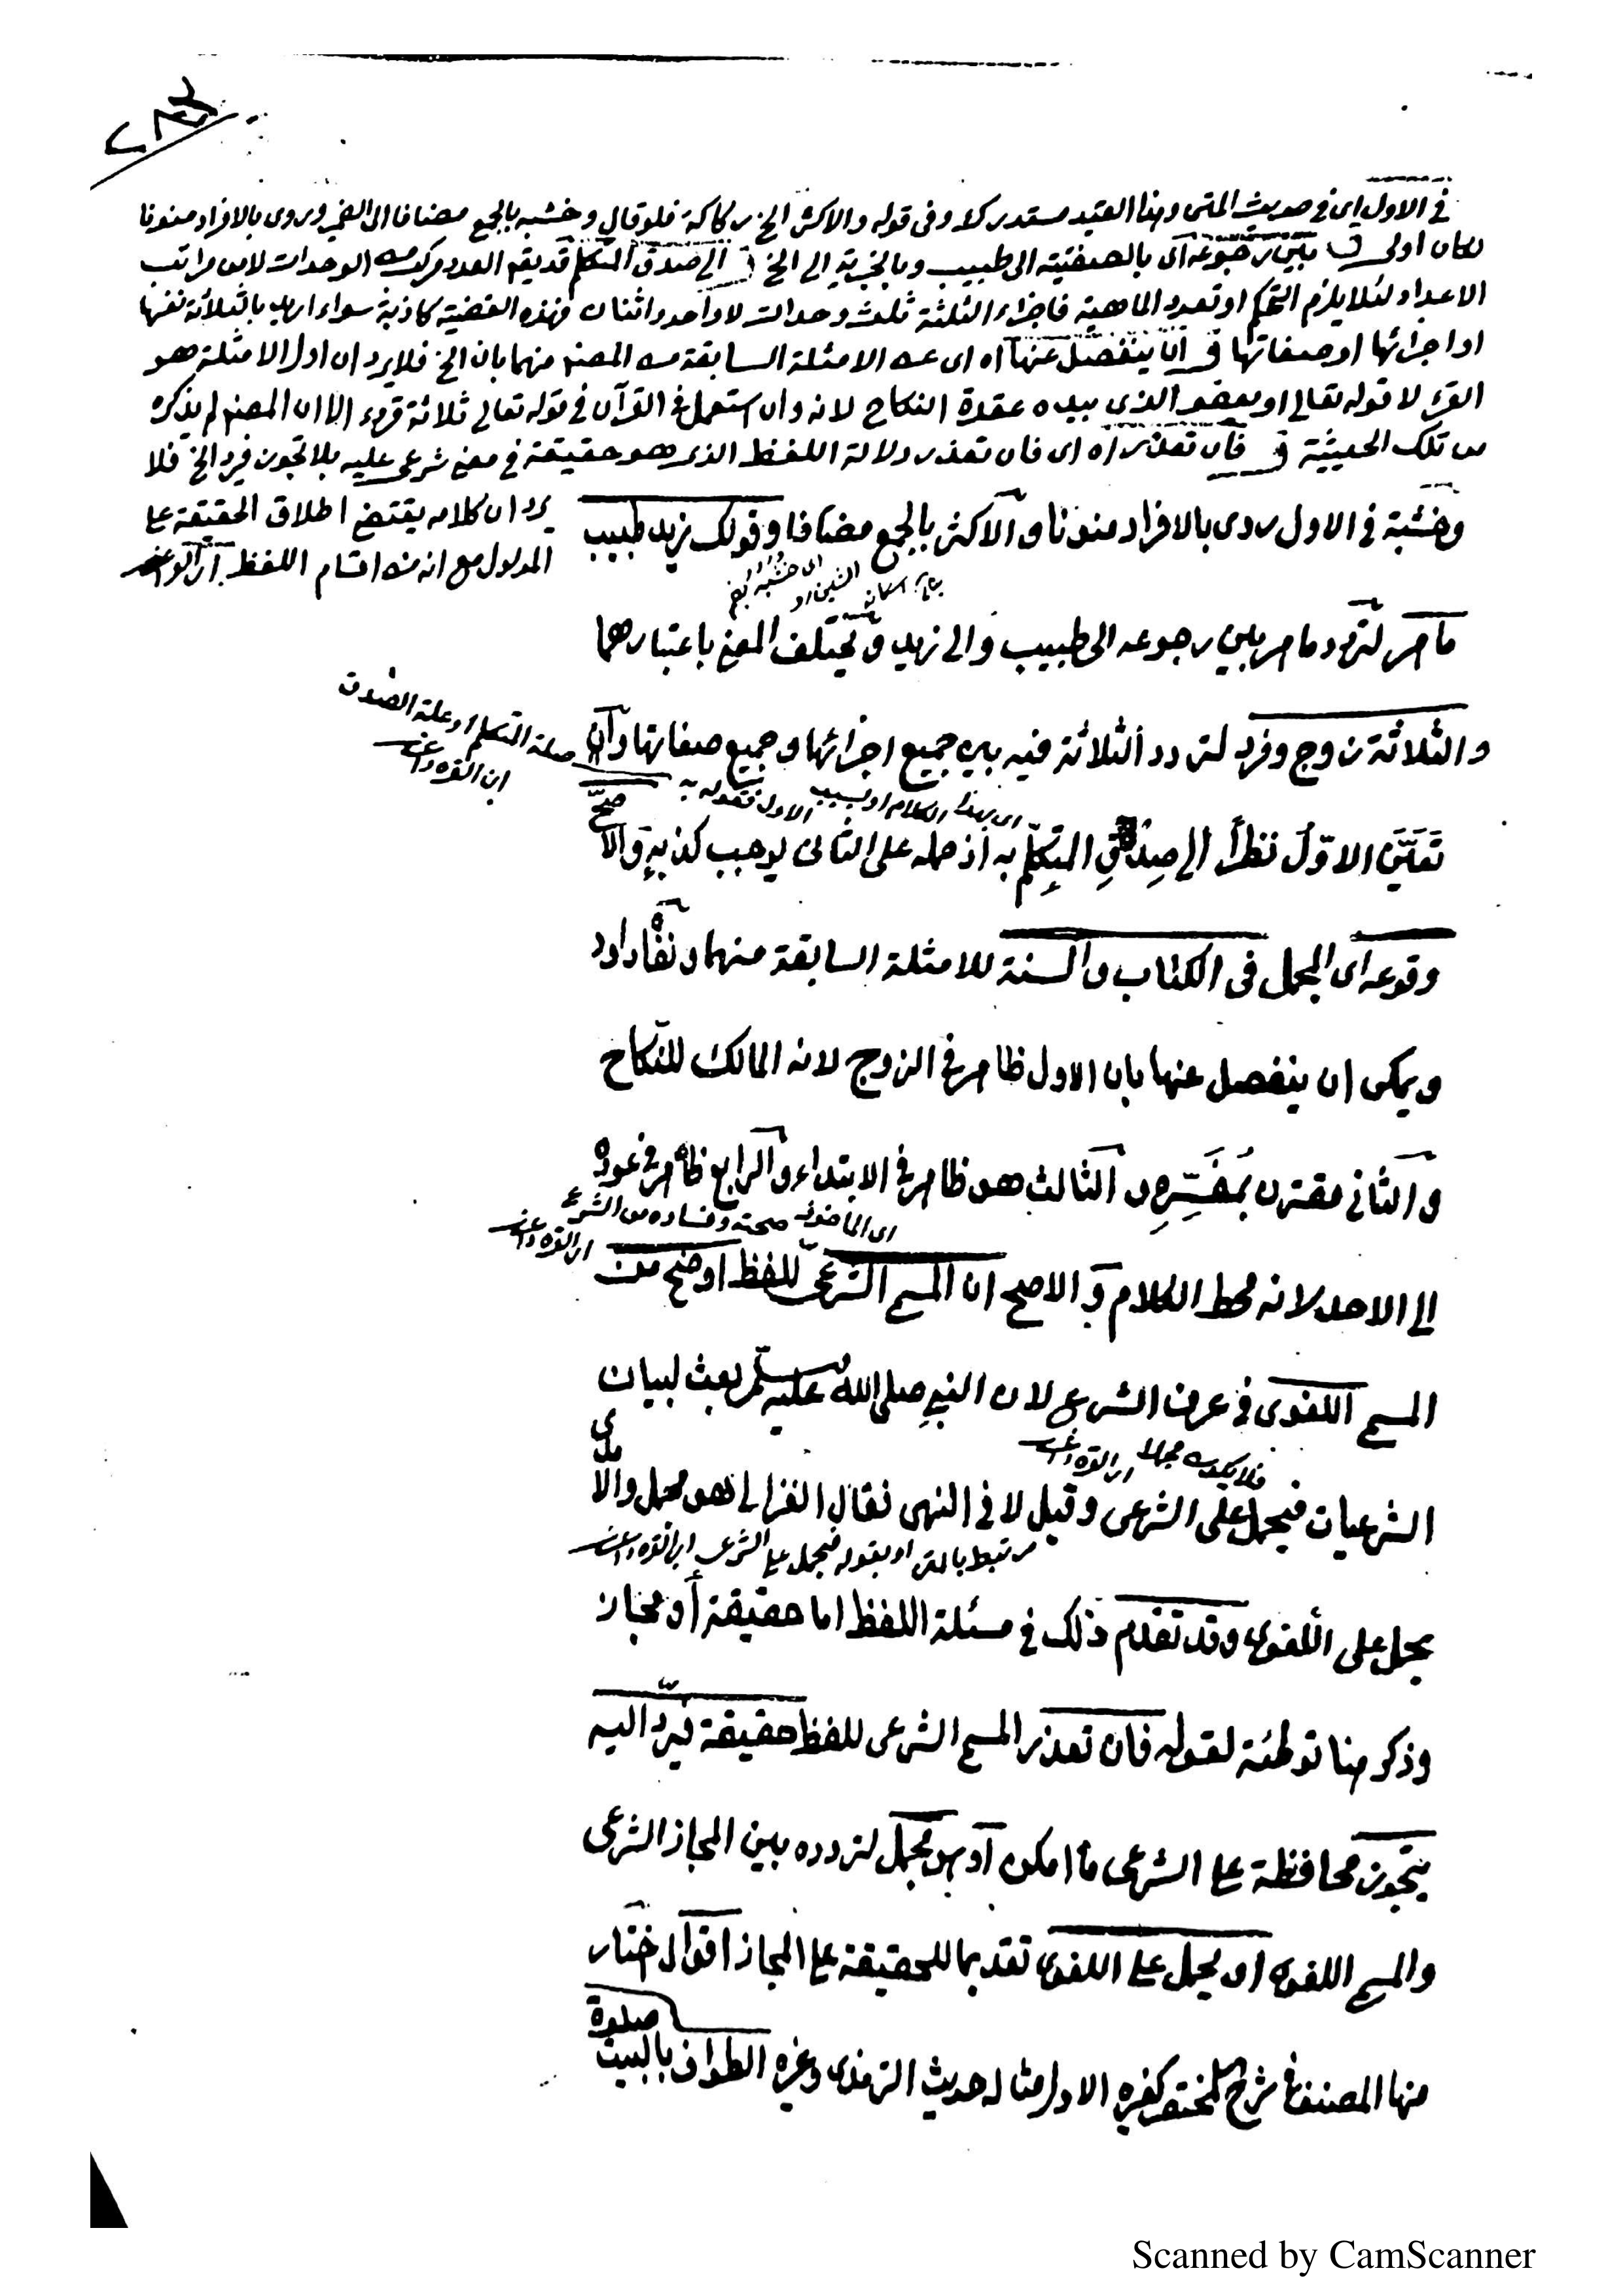 ٢٨٣
في الاول اي في حديث المتن وهذا القيد مستدرك لا وفي قوله والاكثر الخ ركاكة فلو قال وخشبه بالجمع مضافا الى الضمير وروى بالافراد منونا
لكان اولى ق بين رجوعه اى بالصفتية الى طبيب وبالخبرية الى الخ ق الى صدق المتكلم قد يقع العدد مركب من الوحدات لا من مراتب
الاعداد لئلا يلزم التحكم او تعدد الماهية فاجزاء الثلثة ثلث وحدات لا واحد واثنان فهذه القضية كاذبة سواء اريد بالثلاثة نفسها
او اجزائها او صفاتها ق ان ينفصل عنها اه اى عن الامثلة السابقة من المصنف منهما بان الخ فلا يرد ان اول الامثلة هو
القرء لا قوله تعالى او يعفو الذي بيده عقدة النكاح لانه وان استعمل في القرآن في قوله تعالى ثلاثة قروء الا ان المصنف لم يذكره
من تلك الحيثية ق فان تعذر اه اى فان تعذر دلالة اللفظ الذي هو حقيقة في معنى شرعي عليه بلا تجوز فيرد الخ فلا
يرد ان كلامه يقتضي اطلاق الحقيقة على
المدلول مع انه من اقسام اللفظ ابن القره داغي
وخشبة في الاول روى بالافراد منونا والاكثر بالجمع مضافا وقولك زيد طبيب
ماهر لتردد ماهر بين رجوعه الى طبيب والى زيد ويختلف المعنى باعتبارهما
صلة المتكلم او علة الصدق
ابن القره داغي
والثلاثة زوج وفرد لتردد الثلاثة فيه بين جميع اجزائها وجميع صفاتها وان
اى بهذا الكلام او بسبب الاول فقوله به
صح
تعيّن الاوّل نظراً الى صدق المتكلّم به اذ حمله على الثاني يوجب كذبه والاصح
وقوعه اى المجمل في الكتاب والسنة للامثلة السابقة منهما ونفاه داود
ويمكن ان ينفصل عنها بان الاول ظاهر في الزوج لانه المالك للنكاح
والثاني مقترن بمفسّره والثالث هو ظاهر في الابتداء والرابع ظاهر في عوده
اى المأخوذ صحته وفساده من الشرع
ابن القره داغي
الى الاحد لانه محط الكلام والاصح ان المسمى الشرعي للفظ اوضح من
المسمى اللغوى في عرف الشرع لان النبي صلى الله عليه وسلم بعث لبيان
فلا يكون مجملا ابن القره داغي
الشرعيات فيحمل على الشرعى وقيل لا في النهى فقال الغزالى هو مجمل والآمدى
مرتبط بالمتن او بقوله فيحمل على الشرعى ابن القره داغي
يحمل على اللغوى وقد تقدم ذلك في مسئلة اللفظ اما حقيقة أو مجاز
وذكر هنا توطئة لقوله فان تعذر المسمى الشرعى للفظ حقيقة فيردّ اليه
بتجوز محافظة على الشرعى ما امكن او هو مجمل لتردده بين المجاز الشرعى
والمسمى اللغوى او يحمل على اللغوى تقديما للحقيقة على المجاز اقوال اختار
منها المصنف في شرح المختصر كغيره الاول مثاله حديث الترمذى وغيره الطواف بالبيت صلوة
Scanned by CamScanner